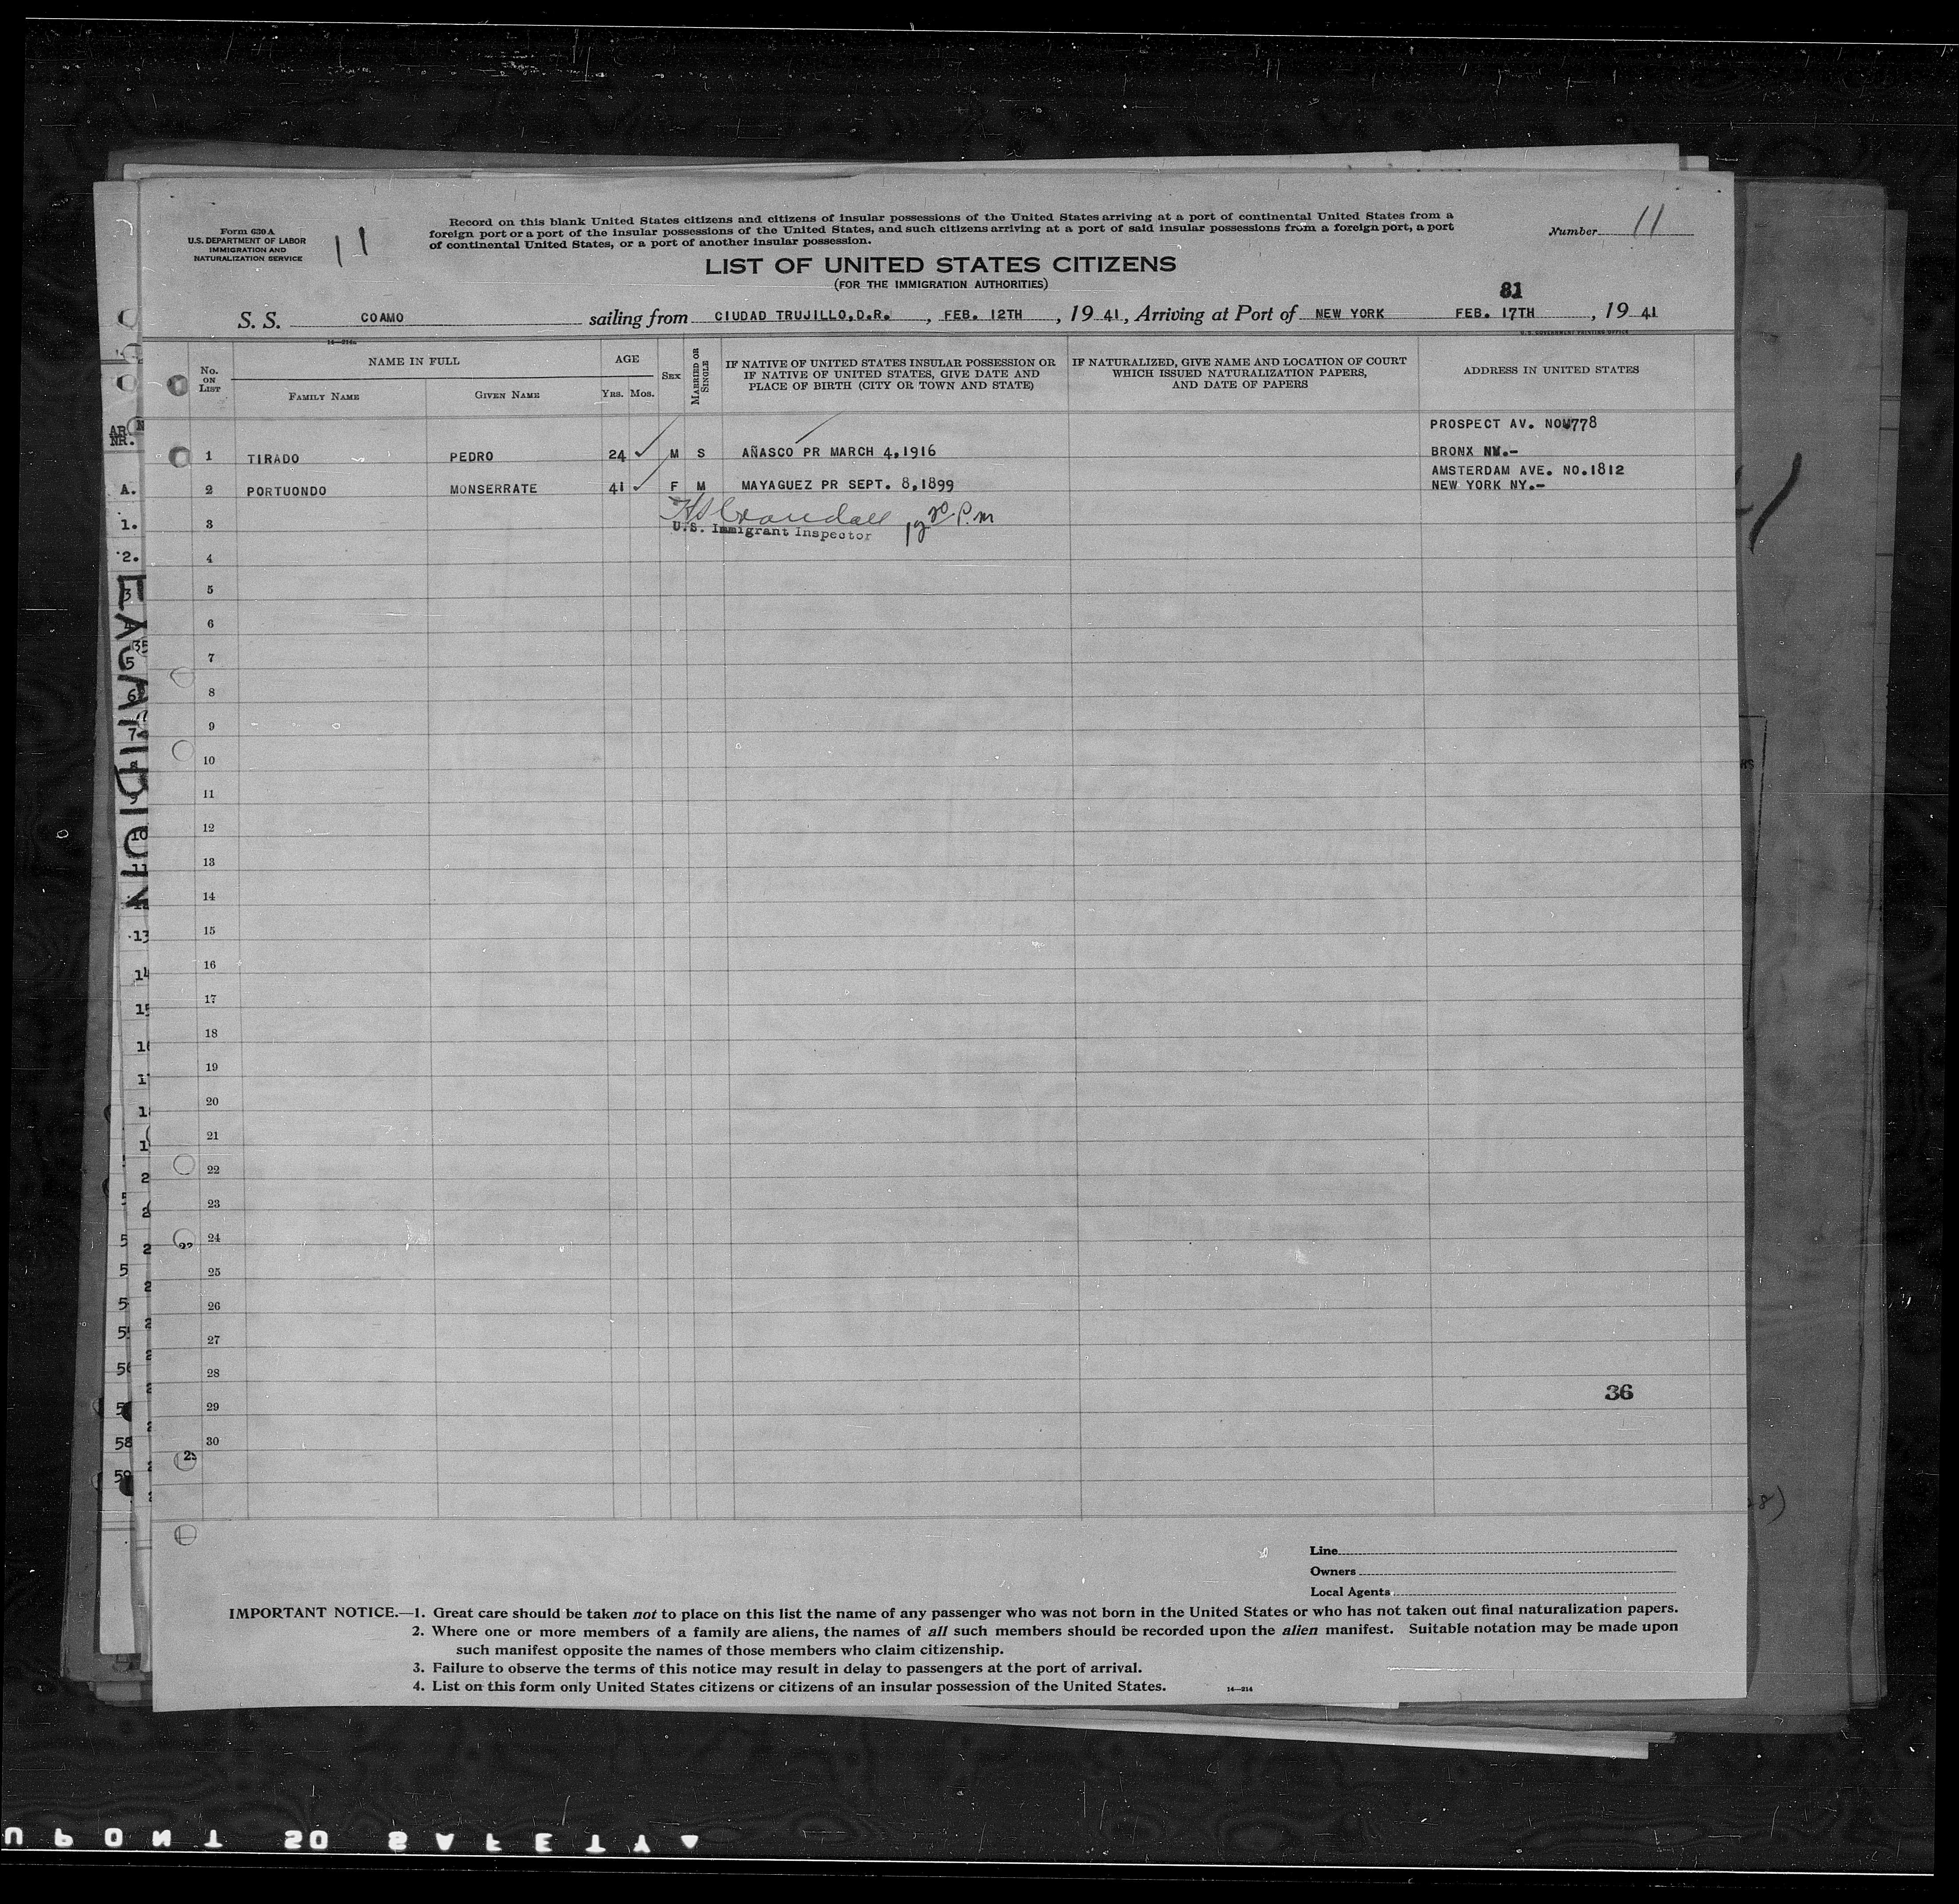 Form 630 A
U.S. DEPARTMENT OF LABOR
IMMIGRATION AND
NATURALIZATION SERVICE
11
Record on this blank United States citizens and citizens of insular possessions of the United States arriving at a port of continental United States from a
foreign port or a port of the insular possessions of the United States, and such citizens arriving at a port of said insular possessions from a foreign port, a port
of continental United States, or a port of another insular possession.
Number 11
LIST OF UNITED STATES CITIZENS
(FOR THE IMMIGRATION AUTHORITIES)
81
S. S. COAMO sailing from CIUDAD TRUJILLO,D.R. , FEB. 12TH , 19 41, Arriving at Port of NEW YORK FEB. 17TH , 19 41
U.S. GOVERNMENT PRINTING OFFICE
14—214a
No. ON LIST
NAME IN FULL
FAMILY NAME
GIVEN NAME
AGE
YRS. MOS.
SEX
MARRIED OR SINGLE
IF NATIVE OF UNITED STATES INSULAR POSSESSION OR
IF NATIVE OF UNITED STATES, GIVE DATE AND
PLACE OF BIRTH (CITY OR TOWN AND STATE)
IF NATURALIZED, GIVE NAME AND LOCATION OF COURT
WHICH ISSUED NATURALIZATION PAPERS,
AND DATE OF PAPERS
ADDRESS IN UNITED STATES
PROSPECT AV. NO 778
1 TIRADO PEDRO 24 ✓ M S AÑASCO PR MARCH 4,1916 BRONX NY.-
AMSTERDAM AVE. NO.1812
2 PORTUONDO MONSERRATE 41 ✓ F M MAYAGUEZ PR SEPT. 8,1899 NEW YORK NY.-
3 Crandall P.m
U.S. Immigrant Inspector
4
5
6
7
8
9
10
11
12
13
14
15
16
17
18
19
20
21
22
23
24
25
26
27
28
36
29
30
Line
Owners
Local Agents
IMPORTANT NOTICE.—1. Great care should be taken not to place on this list the name of any passenger who was not born in the United States or who has not taken out final naturalization papers.
2. Where one or more members of a family are aliens, the names of all such members should be recorded upon the alien manifest. Suitable notation may be made upon
such manifest opposite the names of those members who claim citizenship.
3. Failure to observe the terms of this notice may result in delay to passengers at the port of arrival.
4. List on this form only United States citizens or citizens of an insular possession of the United States.
14—214